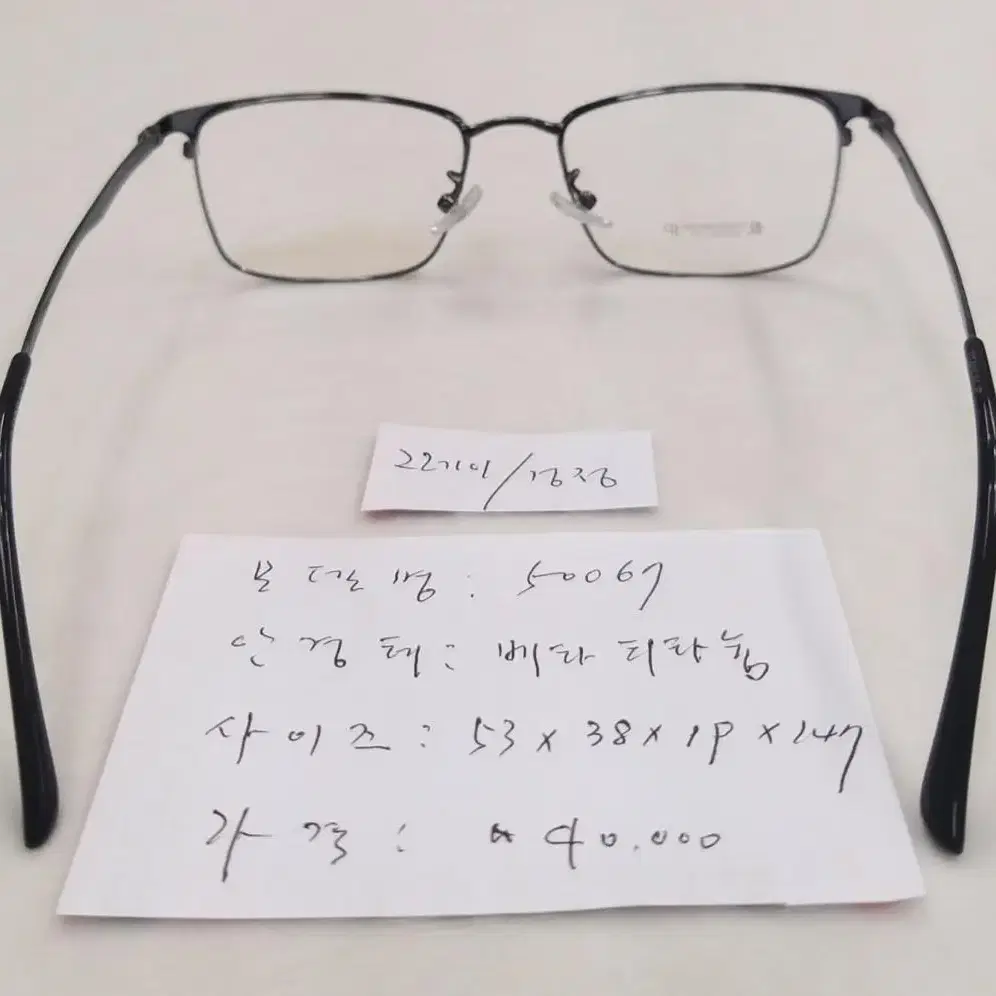 22기이/검정
모델명: 50067
안경테: 베타티타늄
사이즈: 53x38x19x147
가격: ₩40.000